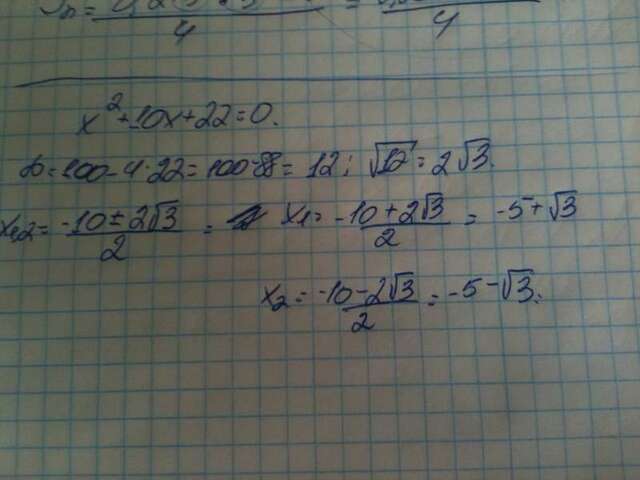 4 4
x² + 10x + 22 = 0.
D = 100 - 4 · 22 = 100 - 88 = 12; √12 = 2√3.
x₁,₂ = (-10 ± 2√3)/2 = x₁ = (-10 + 2√3)/2 = -5 + √3
x₂ = (-10 - 2√3)/2 = -5 - √3.